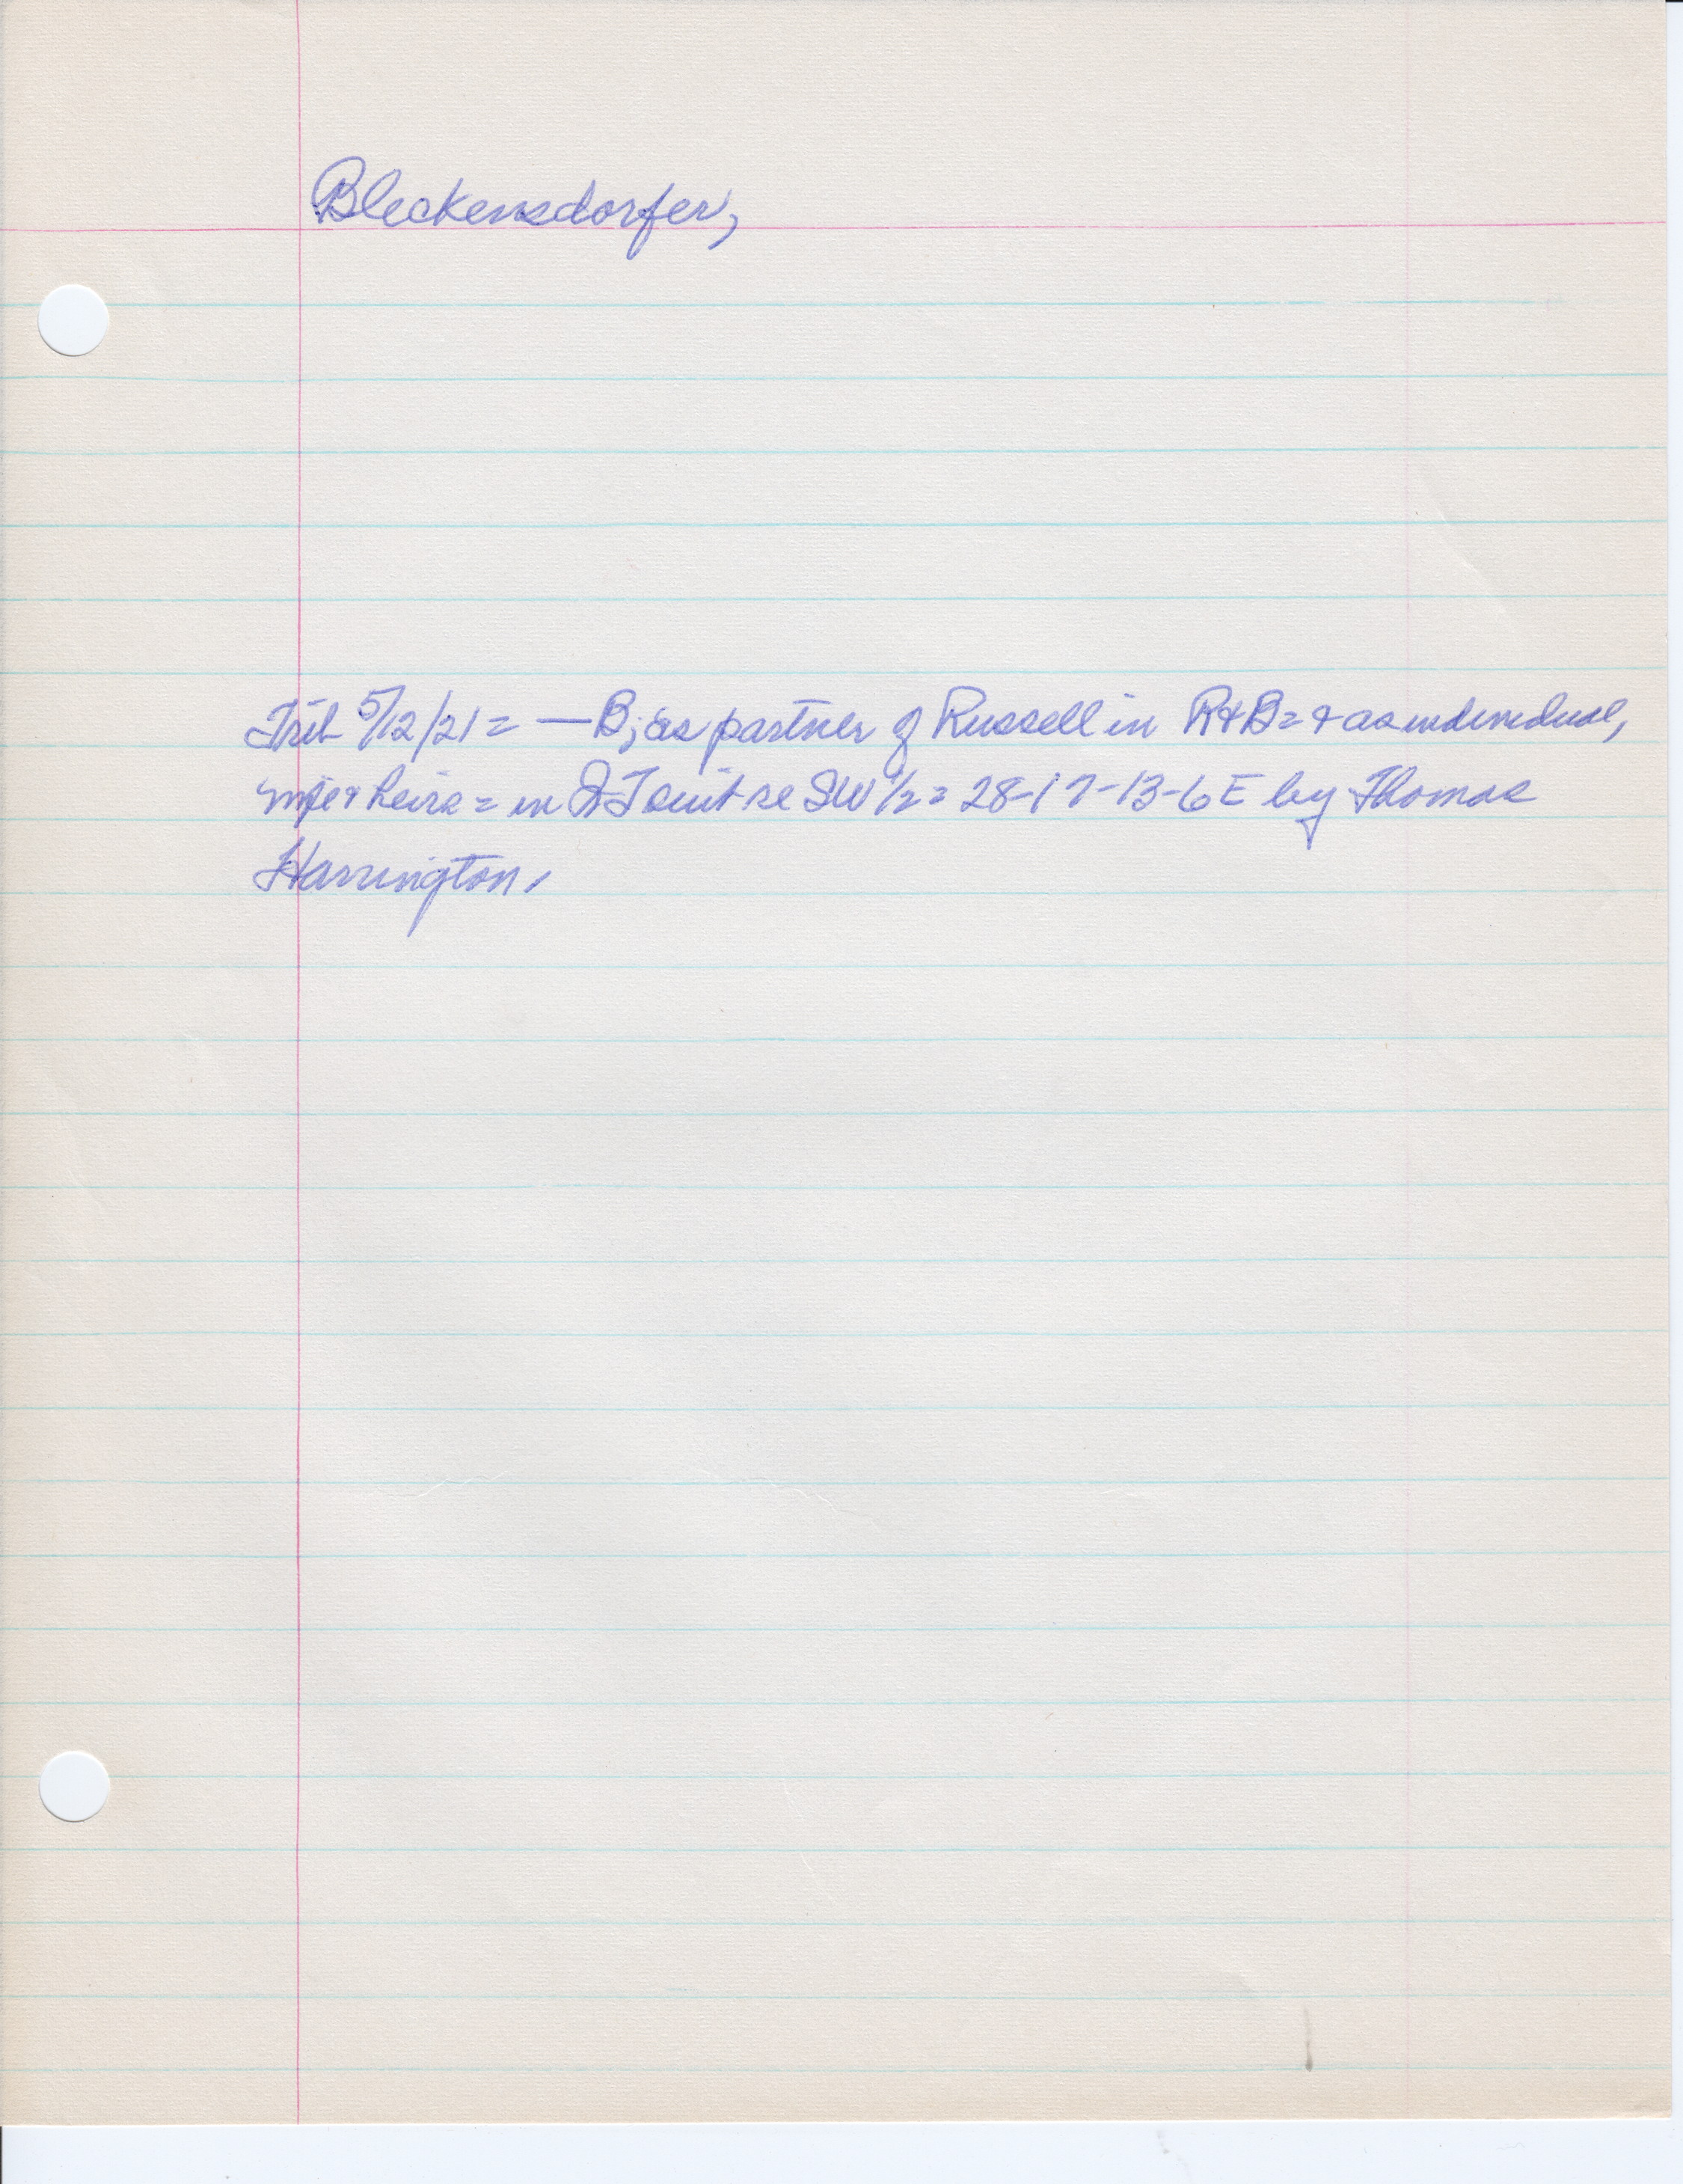 Bleckensdorfer,
Trib 5/12/21 = — B; as partner of Russell in R&B = & as individual,
wife & heirs = in QT suit re SW 1/2 = 28-17-13-6E by Thomas
Harrington,